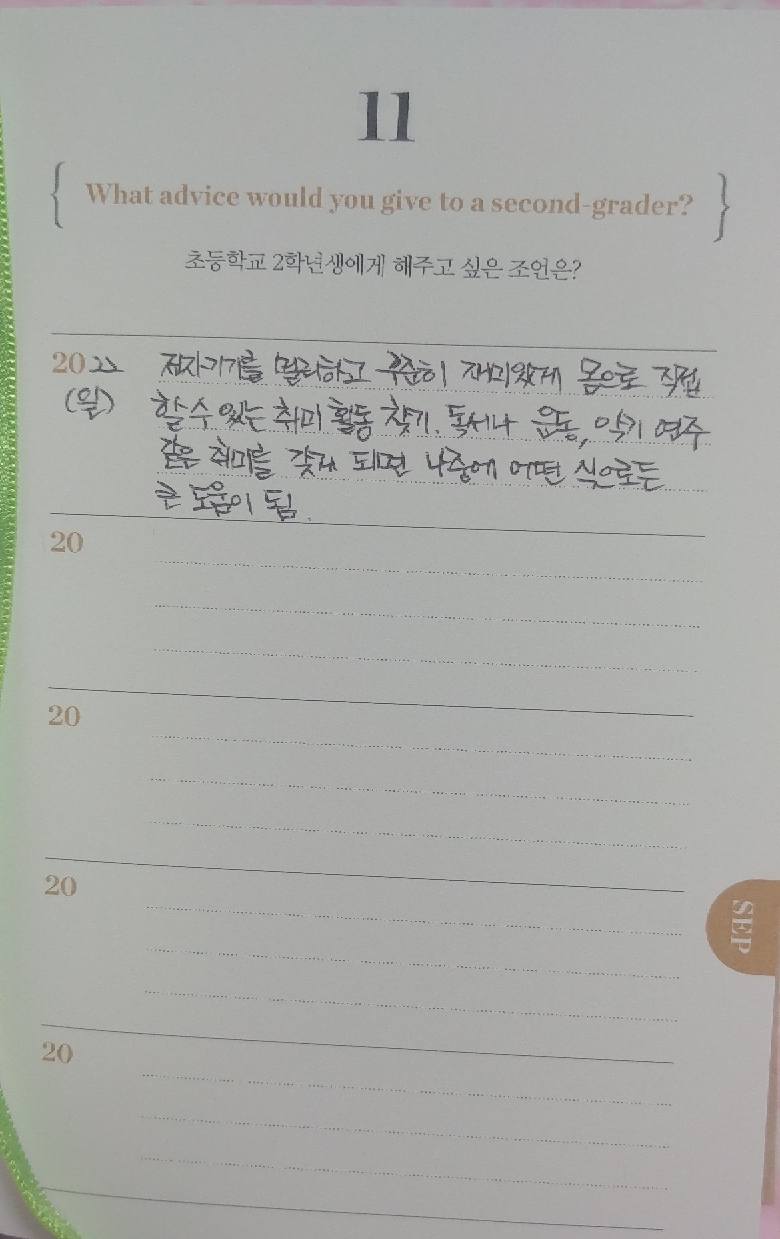 11
{ What advice would you give to a second-grader? }
초등학교 2학년생에게 해주고 싶은 조언은?
2022 전자기기를 멀리하고 꾸준히 재미있게 몸으로 직접
(일) 할 수 있는 취미 활동 찾기. 독서나 운동, 악기 연주
같은 취미를 갖게 되면 나중에 어떤 식으로든
큰 도움이 됨.
20
20
20
SEP
20